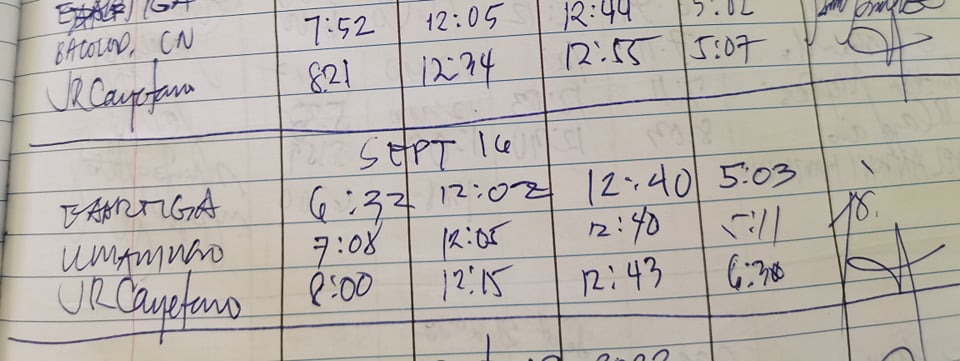 7:52 12:05 12:44
BACOLOD, CN 12:55 5:07
JRCayetano 8:21 12:34
SEPT 16
EAARTIGA 6:32 12:02 12:40 5:03
7:08 12:05 12:40 5:11
JRCayetano 8:00 12:15 12:43 6:30